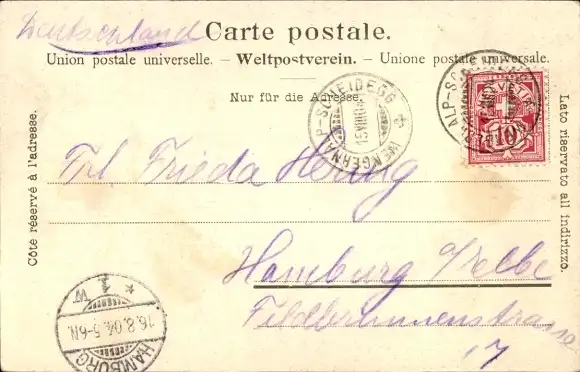 Deutschland
Carte postale.
Union postale universelle. – Weltpostverein. – Unione postale universale.
Nur für die Adresse.
Côte réservé à l'adresse.
Lato riservato all indirizzo.
WENGERNALP-SCHEIDEGG
HELVETIA
10
Frl. Frieda Hennig
Hamburg a/Elbe
Feldbrunnenstrasse
17
HAMBURG
1. W
16.8.04.5-6N.